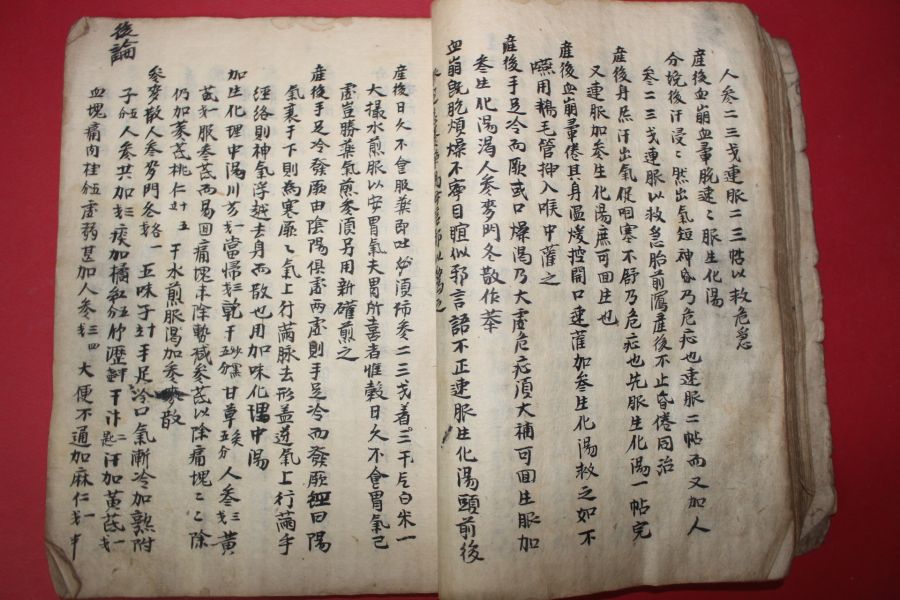 人参二三戋連服二三帖以救危急
産後血崩血暈脱速々服生化湯
分娩後汗浸々然出气短神昏乃危症也速服二帖而又加人
参二三戋連服以救急胎前瀉産後不止昏倦同治
産後身焦汗出氣促咽塞不舒乃危症也先服生化湯一帖完
又連服加参生化湯庶可回庄也
産後血崩暈倦其身温煖控開口速灌加参生化湯救之如不
嚥用鵝毛管抻入喉中灌之
産後手足冷而厥或口燥渴乃大虚危症須大補可回生服加
参生化湯渴人参麥門冬散作茶
血崩既脱煩燥不寧目瞪似邪言語不正速服生化湯頭前後
産後日久不會服薬即吐必須煎参二三戋着三干片白米一
大撮水煎服以安胃氣夫胃所喜者惟穀日久不會胃氣已
虚豈勝薬氣煎参須另用新礶煎之
産後手足冷發厥由陰陽俱虚兩虚則手足冷而發厥經曰陽
氣衰于下則為寒厥々氣上行滿脉去形盖逆氣上行滿手
經絡則神氣浮越去身而散也用加味化理中湯
加生化理中湯川芎戋一當帰戋三乾干五分炒黑甘草五分炙人参戋三黄
芪戋一服参芪而昜回痛塊未除暫减参芪以除痛塊々除
仍加葉芪桃仁廿五干水煎服渴加参麥散
参麥散人参麥門冬戋各一五味子廿五手足冷口氣漸冷加熟附
子五分人参共加戋三痰加橘紅五分竹瀝干汁二匙汗加黄芪戋一
血塊痛肉桂五分虚弱甚加人参戋三四大便不通加麻仁一戋半
後論